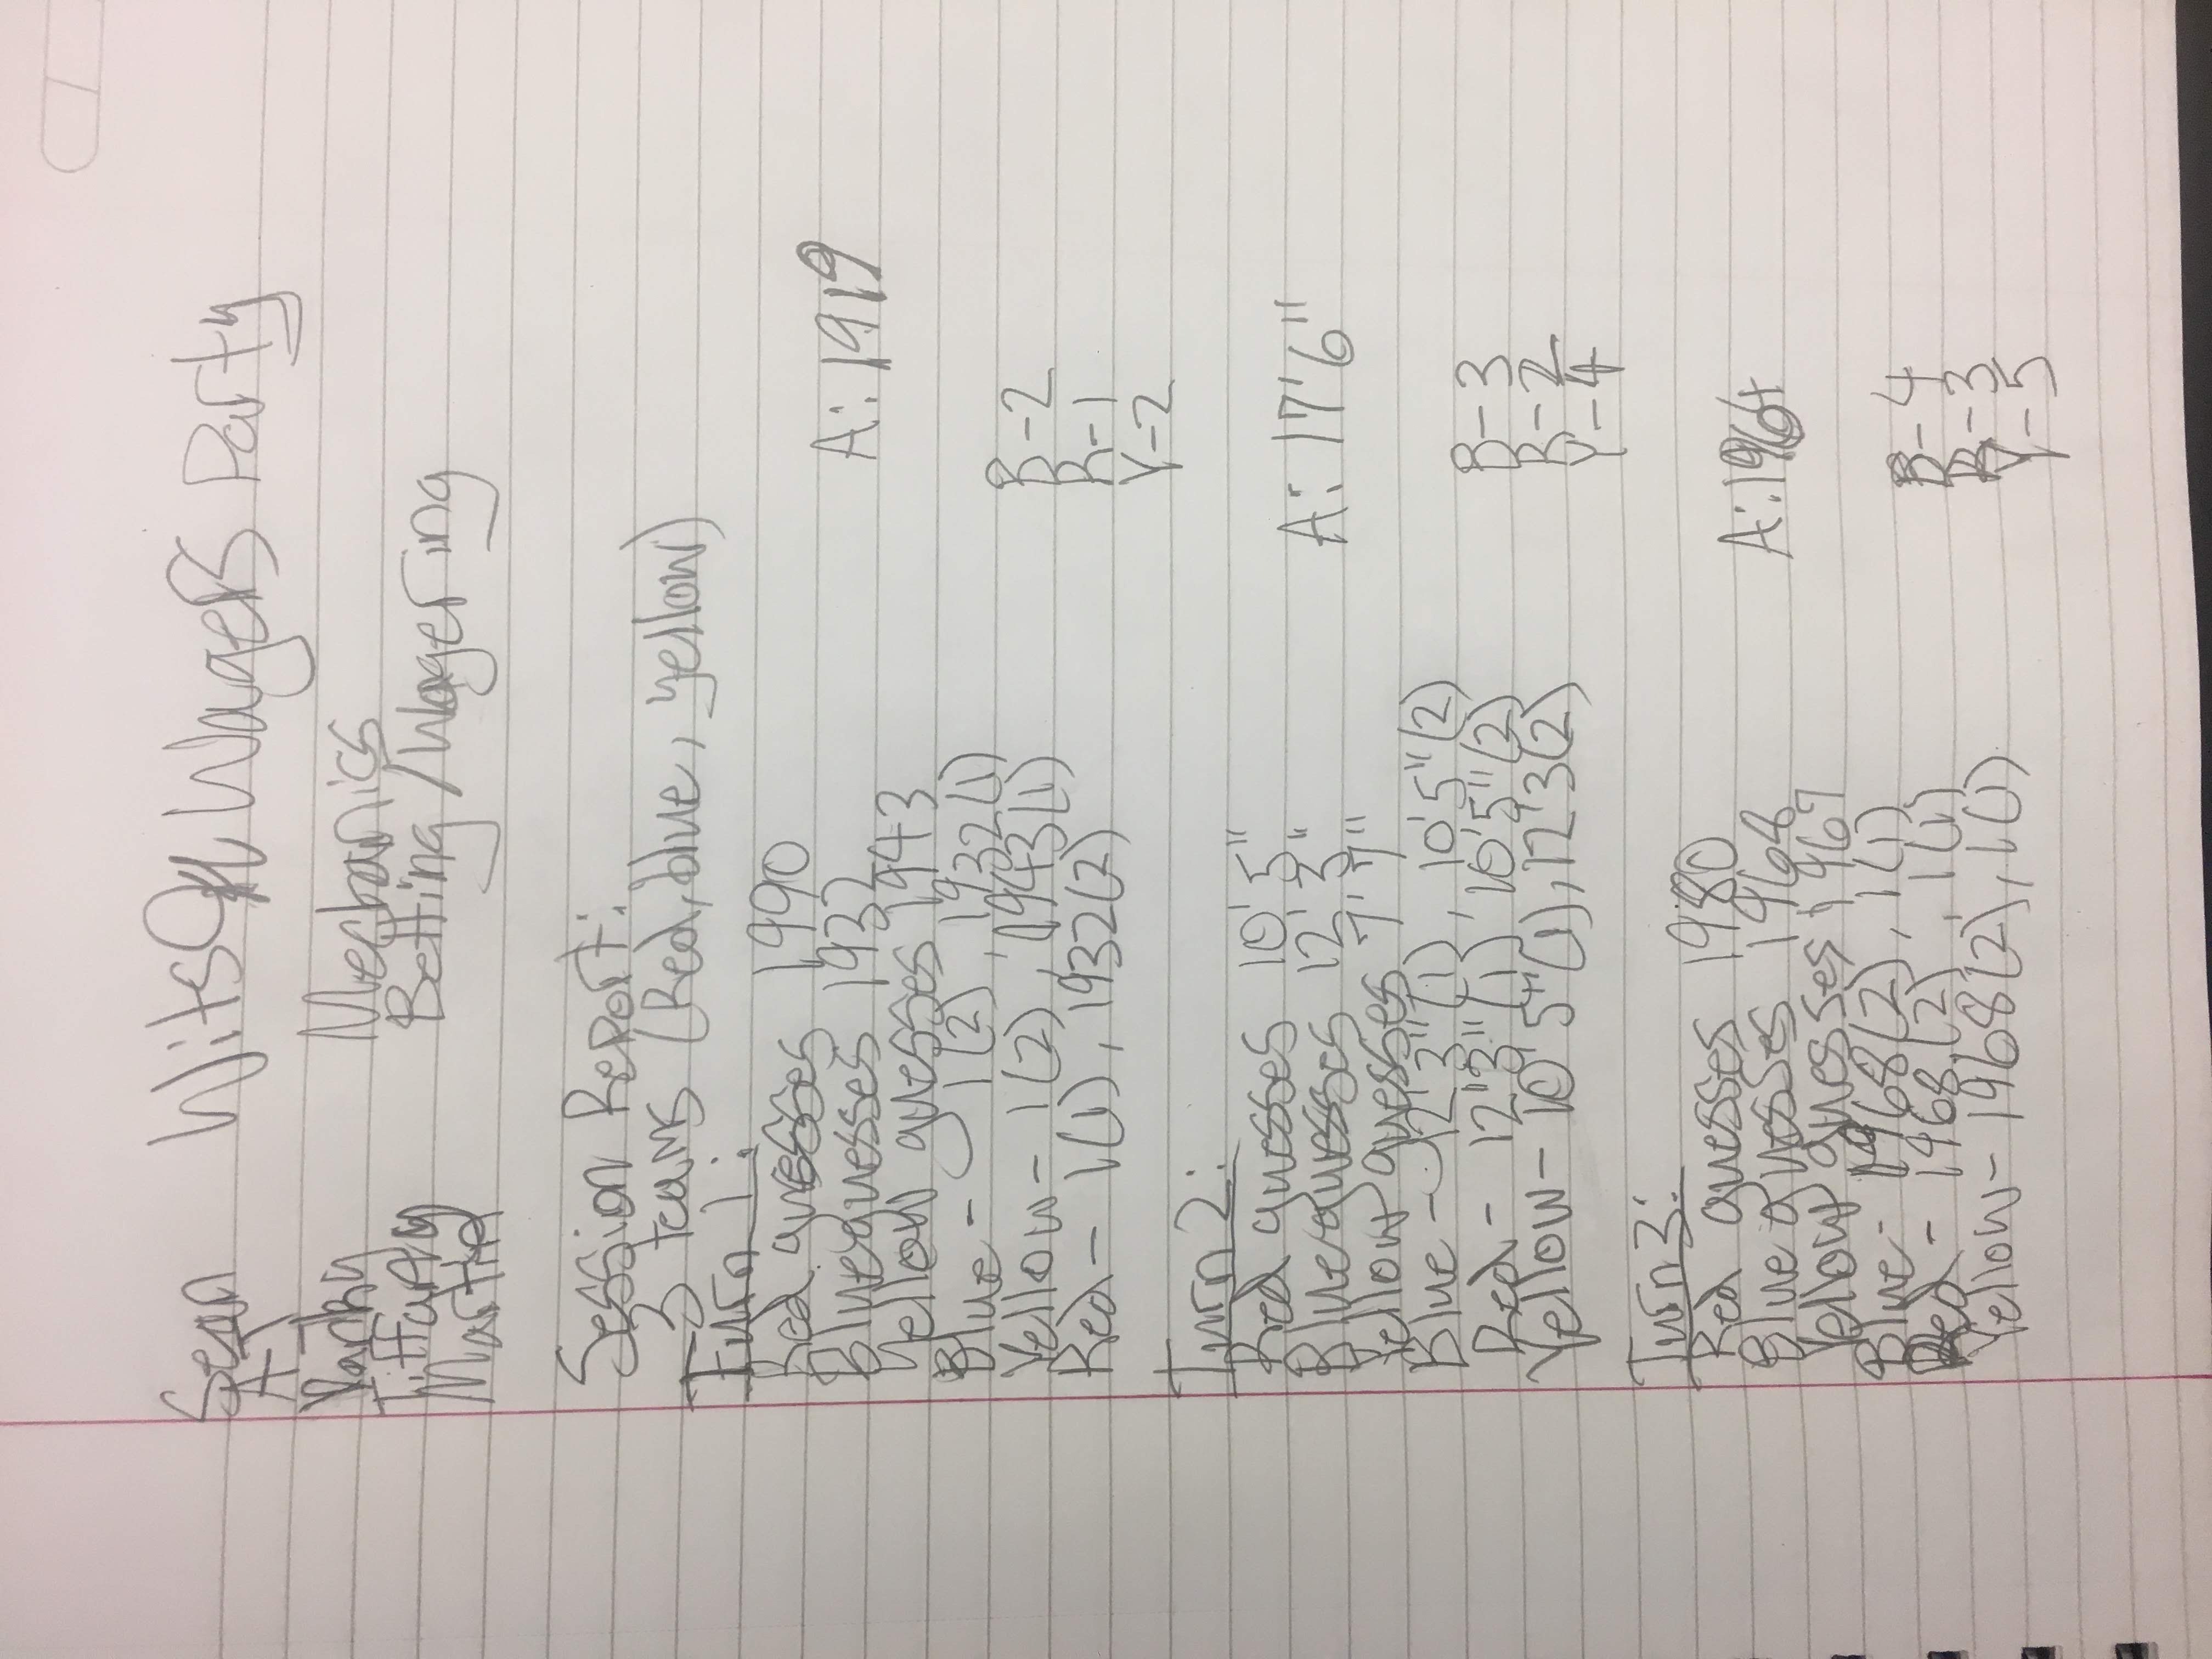 Sean
Wits & Wagers Party
AJ
Mechanics
Betting/Wagering
Tiffany
Martin
Session Report:
3 teams (Red, blue, yellow)
Turn 1:
Red guesses 1990
Blue guesses 1932
A: 1919
Yellow guesses 1943
Blue - 1(2), 1932(1)
Yellow - 1(2), 1943(1)
B-2
Red - 1(1), 1932(2)
R-1
Y-2
Turn 2:
Red guesses 10'5"
Blue guesses 12'3"
A: 17'6"
Yellow guesses 7'7"
Blue - 12'3"(1), 10'5"(2)
Red - 12"3"(1) 10'5"(2)
B-3
Yellow - 10'5"(1), 12'3(2)
R-2
Y-4
Turn 3:
Red guesses 1980
Blue guesses 1968
A: 1964
Yellow guesses 1967
Blue - 1968(2), 1(1)
Red - 1968(2), 1(1)
B-4
Yellow - 1968(2), 1(1)
R-3
Y-5